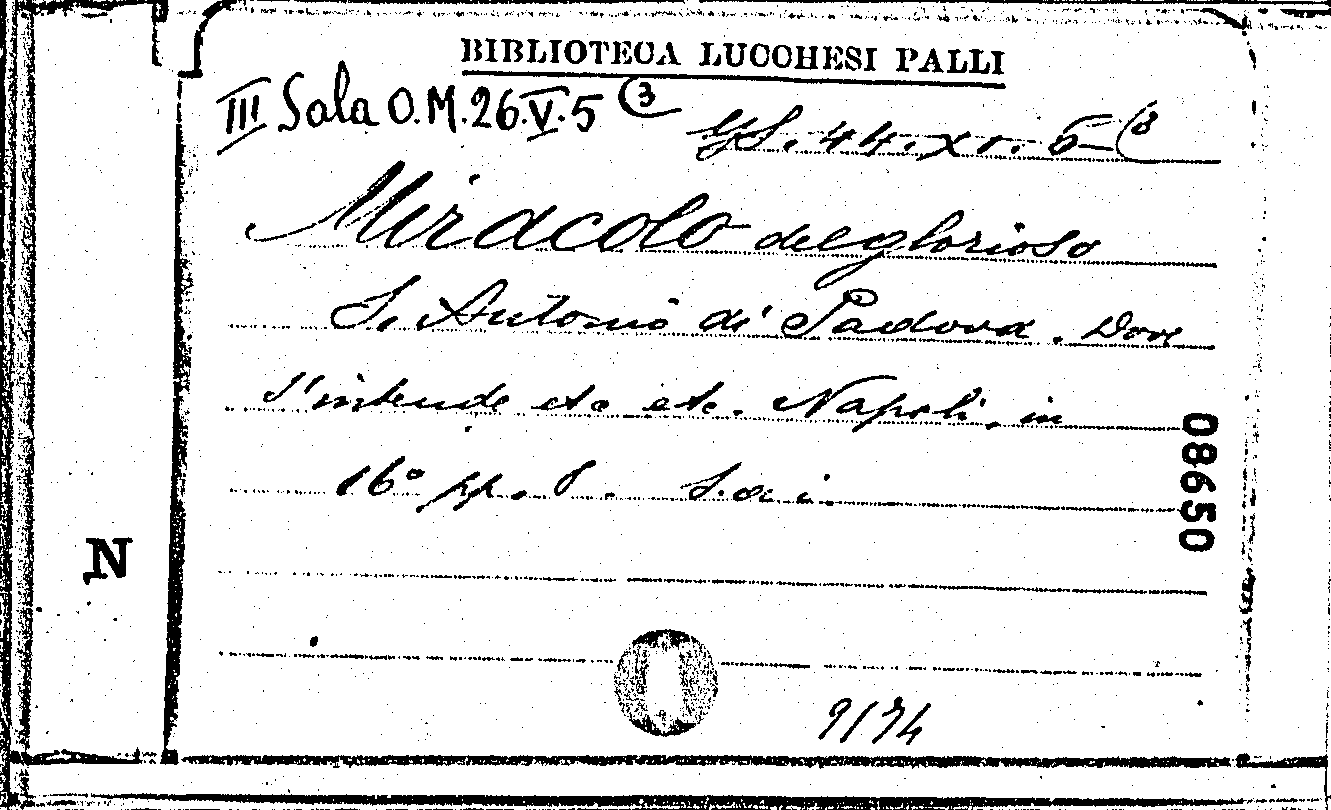 BIBLIOTECA LUCCHESI PALLI
III Sala O.M.26.V.5 (3
44.XV.5 (3
Miracolo del glorioso
S. Antonio di Padova. Dove
s'intende etc etc. Napoli, in
16° pp. 8. s.a.i.
08650
N
9174